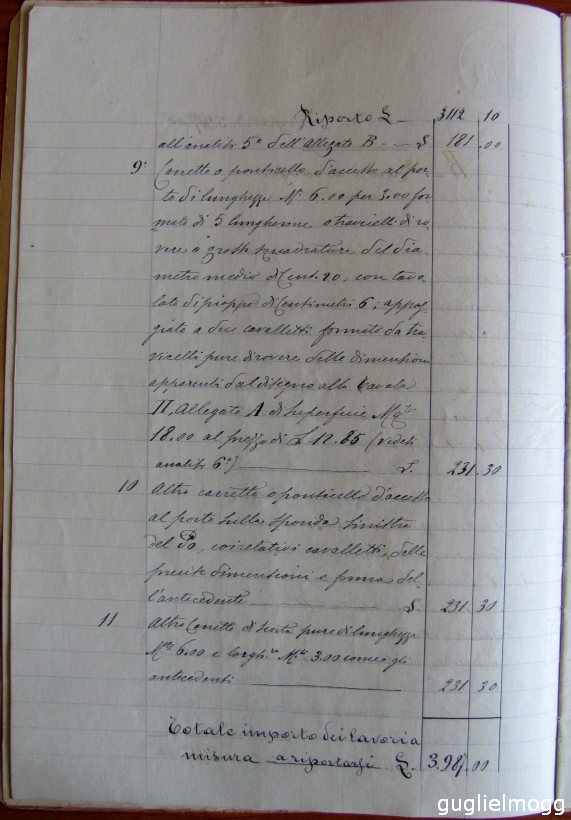 Riporto L. 3112 10
all'analisi 5ª dell'Allegato B. — L. 181.00
9° Carretto o ponticello d'accesso al por-
to di lunghezza M. 6.00 per 3.00 for
mato di 5 lungherine o travicelli di ro-
vere a grossa squadratura del dia-
metro medio di Cent. 20. con tavo-
lato di pioppo di Centimetri 6, appog-
giato a due cavalletti formato da tra
vicelli pure di rovere delle dimensioni
apparenti dal disegno alla tavola
II. Allegato A di superficie Mqti
18.00 al prezzo di L 12.85 (vedasi
analisi 6ª) — L. 231.30
10 Altro carretto o ponticello d'accesso
al porto sulla sponda sinistra
del Po, coi relativi cavalletti, delle
precise dimensioni e forma del-
l'antecedente — L. 231 30
11 Altro Carretto di scorta pure di lunghezza
M. 6.00 e largh. M. 3.00 come gli
antecedenti — 231 30
Totale importo dei lavori a
misura a riportarsi L. 3.987.00
guglielmogg